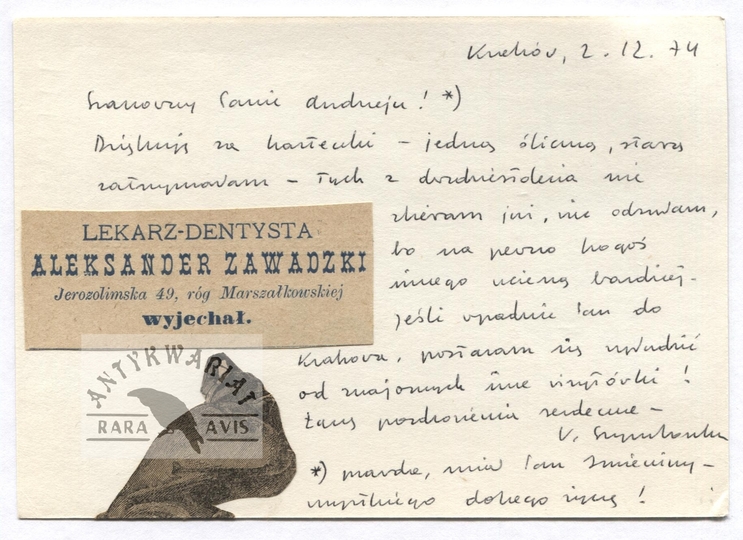 Kraków, 2. 12. 74
Szanowny Panie Andrzeju! *)
Dziękuję za karteczki – jedną śliczną, starą
zatrzymałam – tych z dwudziestolecia nie
zbieram już, nie odsyłam,
bo na pewno kogoś
innego ucieszą bardziej.
Jeśli wpadnie Pan do
Krakowa, postaram się wyłudzić
od znajomych inne wizytówki!
Łączę pozdrowienia serdeczne –
W. Szymborska
*) prawda, miał Pan imieniny –
wszystkiego dobrego życzę!
LEKARZ-DENTYSTA
ALEKSANDER ZAWADZKI
Jerozolimska 49, róg Marszałkowskiej
wyjechał.
ANTYKWARIAT
RARA AVIS